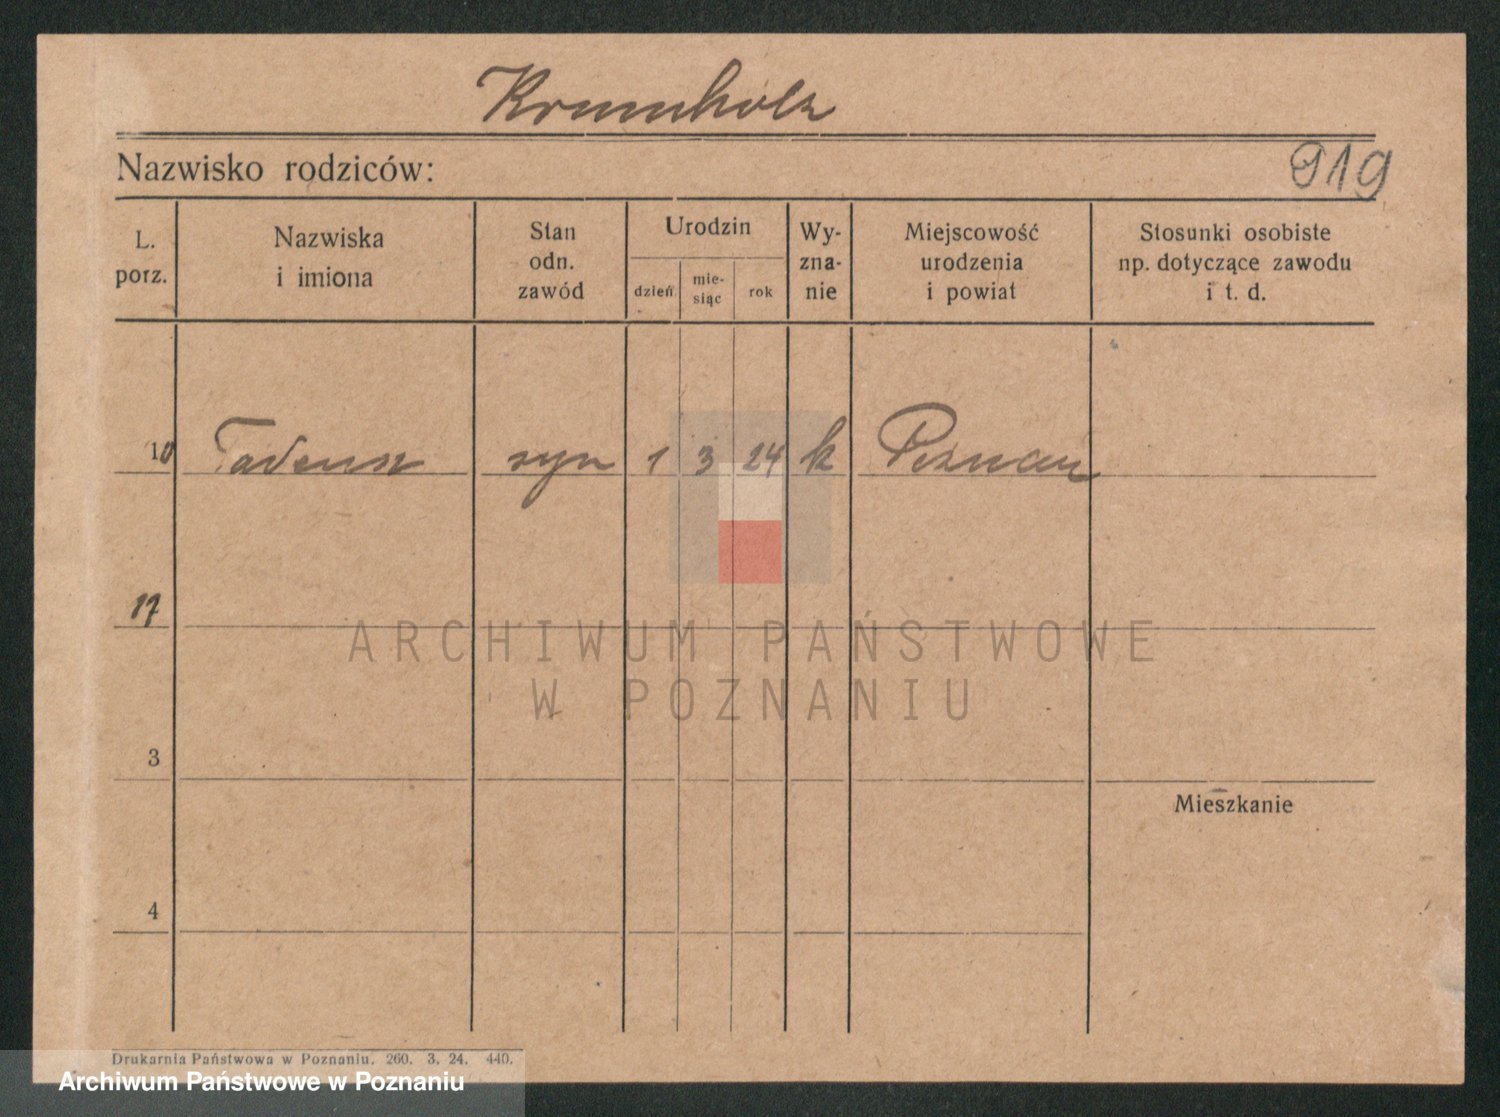 Krumholz
Nazwisko rodziców:
919
L. porz.
Nazwiska i imiona
Stan odn. zawód
Urodzin
dzień
mie-siąc
rok
Wy-zna-nie
Miejscowość urodzenia i powiat
Stosunki osobiste np. dotyczące zawodu i t. d.
10 Tadeusz syn 1 3 24 k Poznań
ARCHIWUM PAŃSTWOWE
W POZNANIU
3
Mieszkanie
4
Drukarnia Państwowa w Poznaniu. 260. 3. 24. 440.
Archiwum Państwowe w Poznaniu